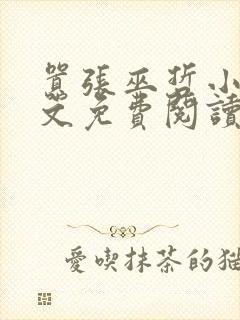 囂張巫哲小
文免費閱讀
愛喫抹茶的貓